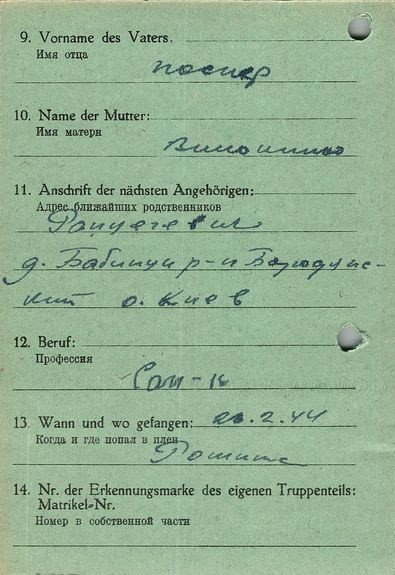 9. Vorname des Vaters.
Имя отца
10. Name der Mutter:
Имя матери
11. Anschrift der nächsten Angehörigen:
Адрес ближайших родственников
д. Бабинци р-н Бородянс-
кий о. Киев
12. Beruf:
Профессия
13. Wann und wo gefangen: 2.44
Когда и где попал в плен
14. Nr. der Erkennungsmarke des eigenen Truppenteils:
Matrikel-Nr.
Номер в собственной части